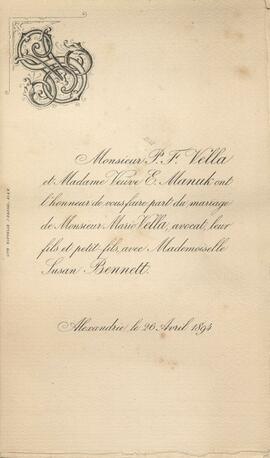 Monsieur P. F. Vella
et Madame Veuve E. Manuk ont
l'honneur de vous faire part du mariage
de Monsieur Mario Vella, avocat, leur
fils et petit-fils, avec Mademoiselle
Susan Bennett.
Alexandrie le 26 Avril 1894